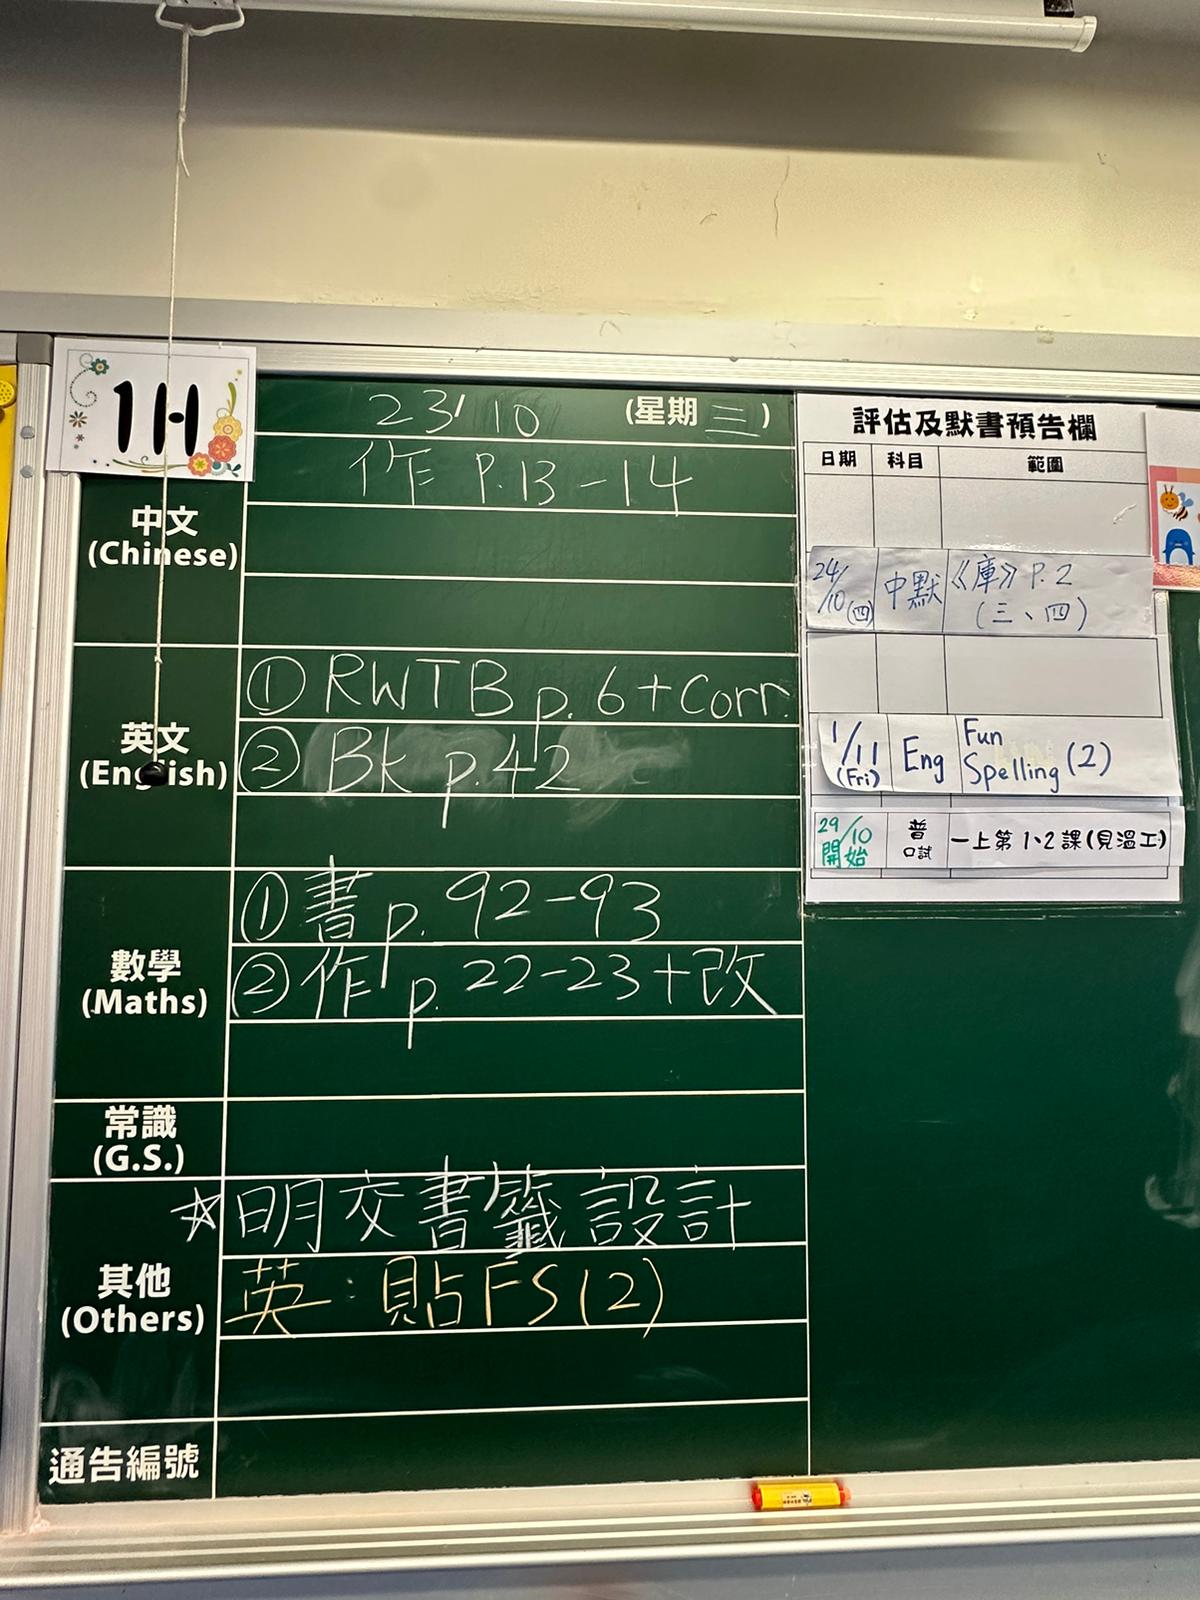 1H
23/10 (星期三)
中文
(Chinese)
作 P.13-14
英文
(English)
① RWTB p.6+Corr.
② Bk p.42
數學
(Maths)
①書 p.92-93
② 作 p.22-23+改
常識
(G.S.)
其他
(Others)
☆明交書籤設計
英:貼FS(2)
通告編號
評估及默書預告欄
日期 科目 範圍
24/10(四) 中默 《庫》P.2
(三、四)
1/11
(Fri) Eng Fun
Spelling (2)
29/10
開始 普
口試 一上第1、2課(見溫工)